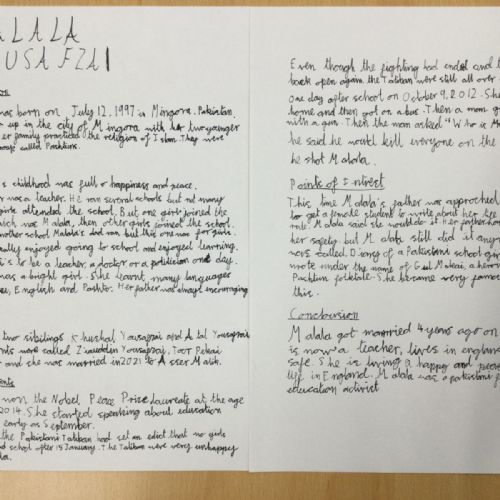 ALALA
USAFZAI
as born on July 12, 1997 in Mingora, Pakistan.
up in the city of Mingora with her two younger
er family practiced the religion of Islam. They were
called Pashtuns.
s childhood was full of happiness and peace.
was a teacher. He ran several schools but not many
girls attended the school. But one girl joined the
ich was Malala, then other girls joined the school.
other school Malala's dad own but this one was for
ally enjoyed going to school and enjoyed learning.
to be a teacher, a doctor or a politician one day.
was a bright girl. She learnt many languages
English and Pashto. Her father was always encouraging
two sibilings Khushal Yousafzai and Atal Yousafzai
nts were called Ziauddin Yousafzai, Toor Pekai
and she was married in 2021 to Asser Malik.
ents
won the Nobel Peace Prize laureate at the age
2014. She started speaking about education
early as September.
the Pakistani Taliban had set an edict that no girls
nd school after 15 January. The Taliban were very unhappy
la.
Even though the fighting had ended and t
back open again the Taliban were still all over
One day after school on October 9, 2012. She
home and then got on a bus. Then a man g
with a gun. Then the man asked "Who is M
he said he would kill everyone on the
he shot Malala.
Points of Intrest
This time Malala's father was approched
to get a female student to write about her life
Malala said she would do it. Her father
her safety but Malala still did it any
were called. Diary of a Pakistani school gir
wrote under the name of Gul Makai, a hero
Pachtun folktale. She became very famo
this.
Conclusion
Malala got marrried 4 years ago on
is now a teacher, lives in england
safe. She is living a happy and peac
life in England. Malala was a pakistani f
education activist